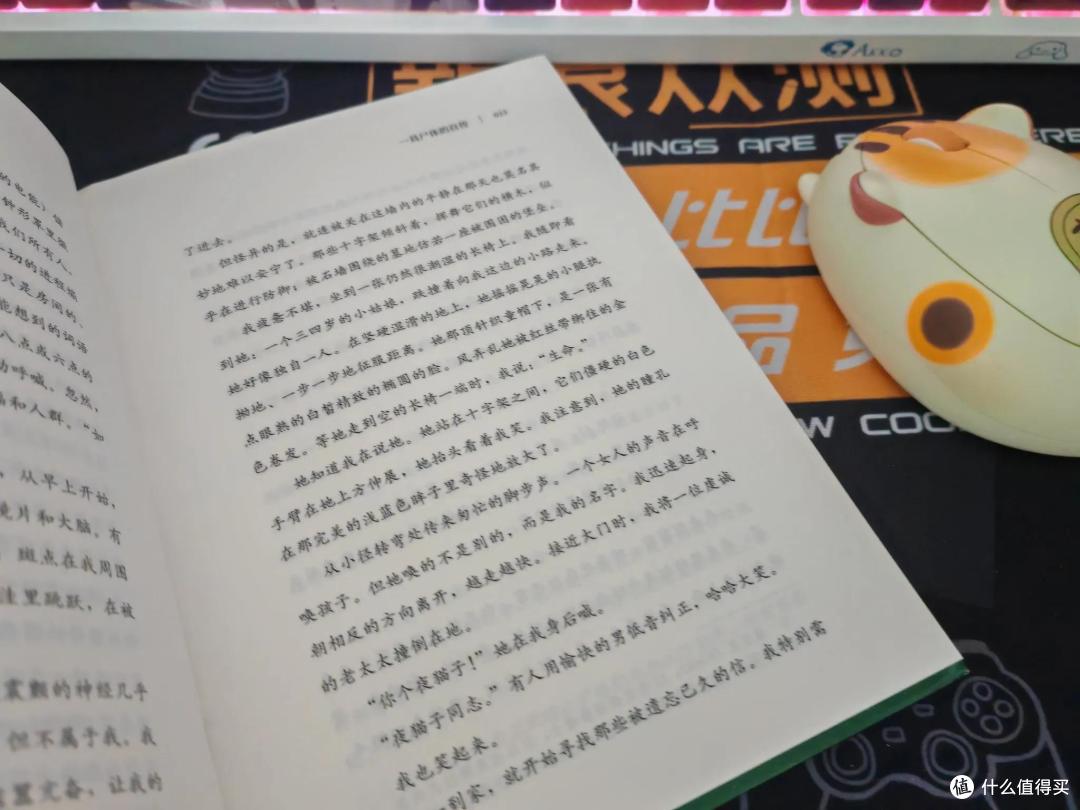 AKKO
新浪众测
THINGS ARE
比比
品
W COO
的电院）值
钟形罩里猛
我们所有人。
切的进程描
只是房间的、
能想到的词语
八点或六点的
动呼喊。忽然，
和人群。“如
，从早上开始，
镜片和大脑。有
斑点在我周围
洼里跳跃，在被
震颤的神经几乎
但不属于我，我
置完备，让我的
一具尸体的自传 | 033
了进去。
但怪异的是，就连被关在这墙内的平静在那天也莫名其
妙地难以安宁了。那些十字架倾斜着，挥舞它们的横木，似
乎在进行防御；被石墙围绕的墓地仿若一座被围困的堡垒。
我疲惫不堪，坐到一张仍然很潮湿的长椅上。我随即看
到她：一个三四岁的小姑娘，跌撞着向我这边的小路走来。
她好像独自一人。在坚硬湿滑的地上，她摇摇晃晃的小腿执
拗地、一步一步地征服距离。她那顶针织童帽下，是一张有
点眼熟的白皙精致的椭圆的脸。风弄乱她被红丝带绑住的金
色卷发。等她走到空的长椅一端时，我说：“生命。”
她知道我在说她。她站在十字架之间，它们僵硬的白色
手臂在她上方伸展，她抬头看着我笑。我注意到，她的瞳孔
在那完美的浅蓝色眸子里奇怪地放大了。
从小径转弯处传来匆忙的脚步声。一个女人的声音在呼
唤孩子。但她唤的不是别的，而是我的名字。我迅速起身，
朝相反的方向离开，越走越快。接近大门时，我将一位虔诚
的老太太撞倒在地。
“你个夜猫子！”她在我身后喊。
“夜猫子同志。”有人用愉快的男低音纠正，哈哈大笑。
我也笑起来。
一到家，就开始寻找那些被遗忘已久的信。我特别需
值 什么值得买